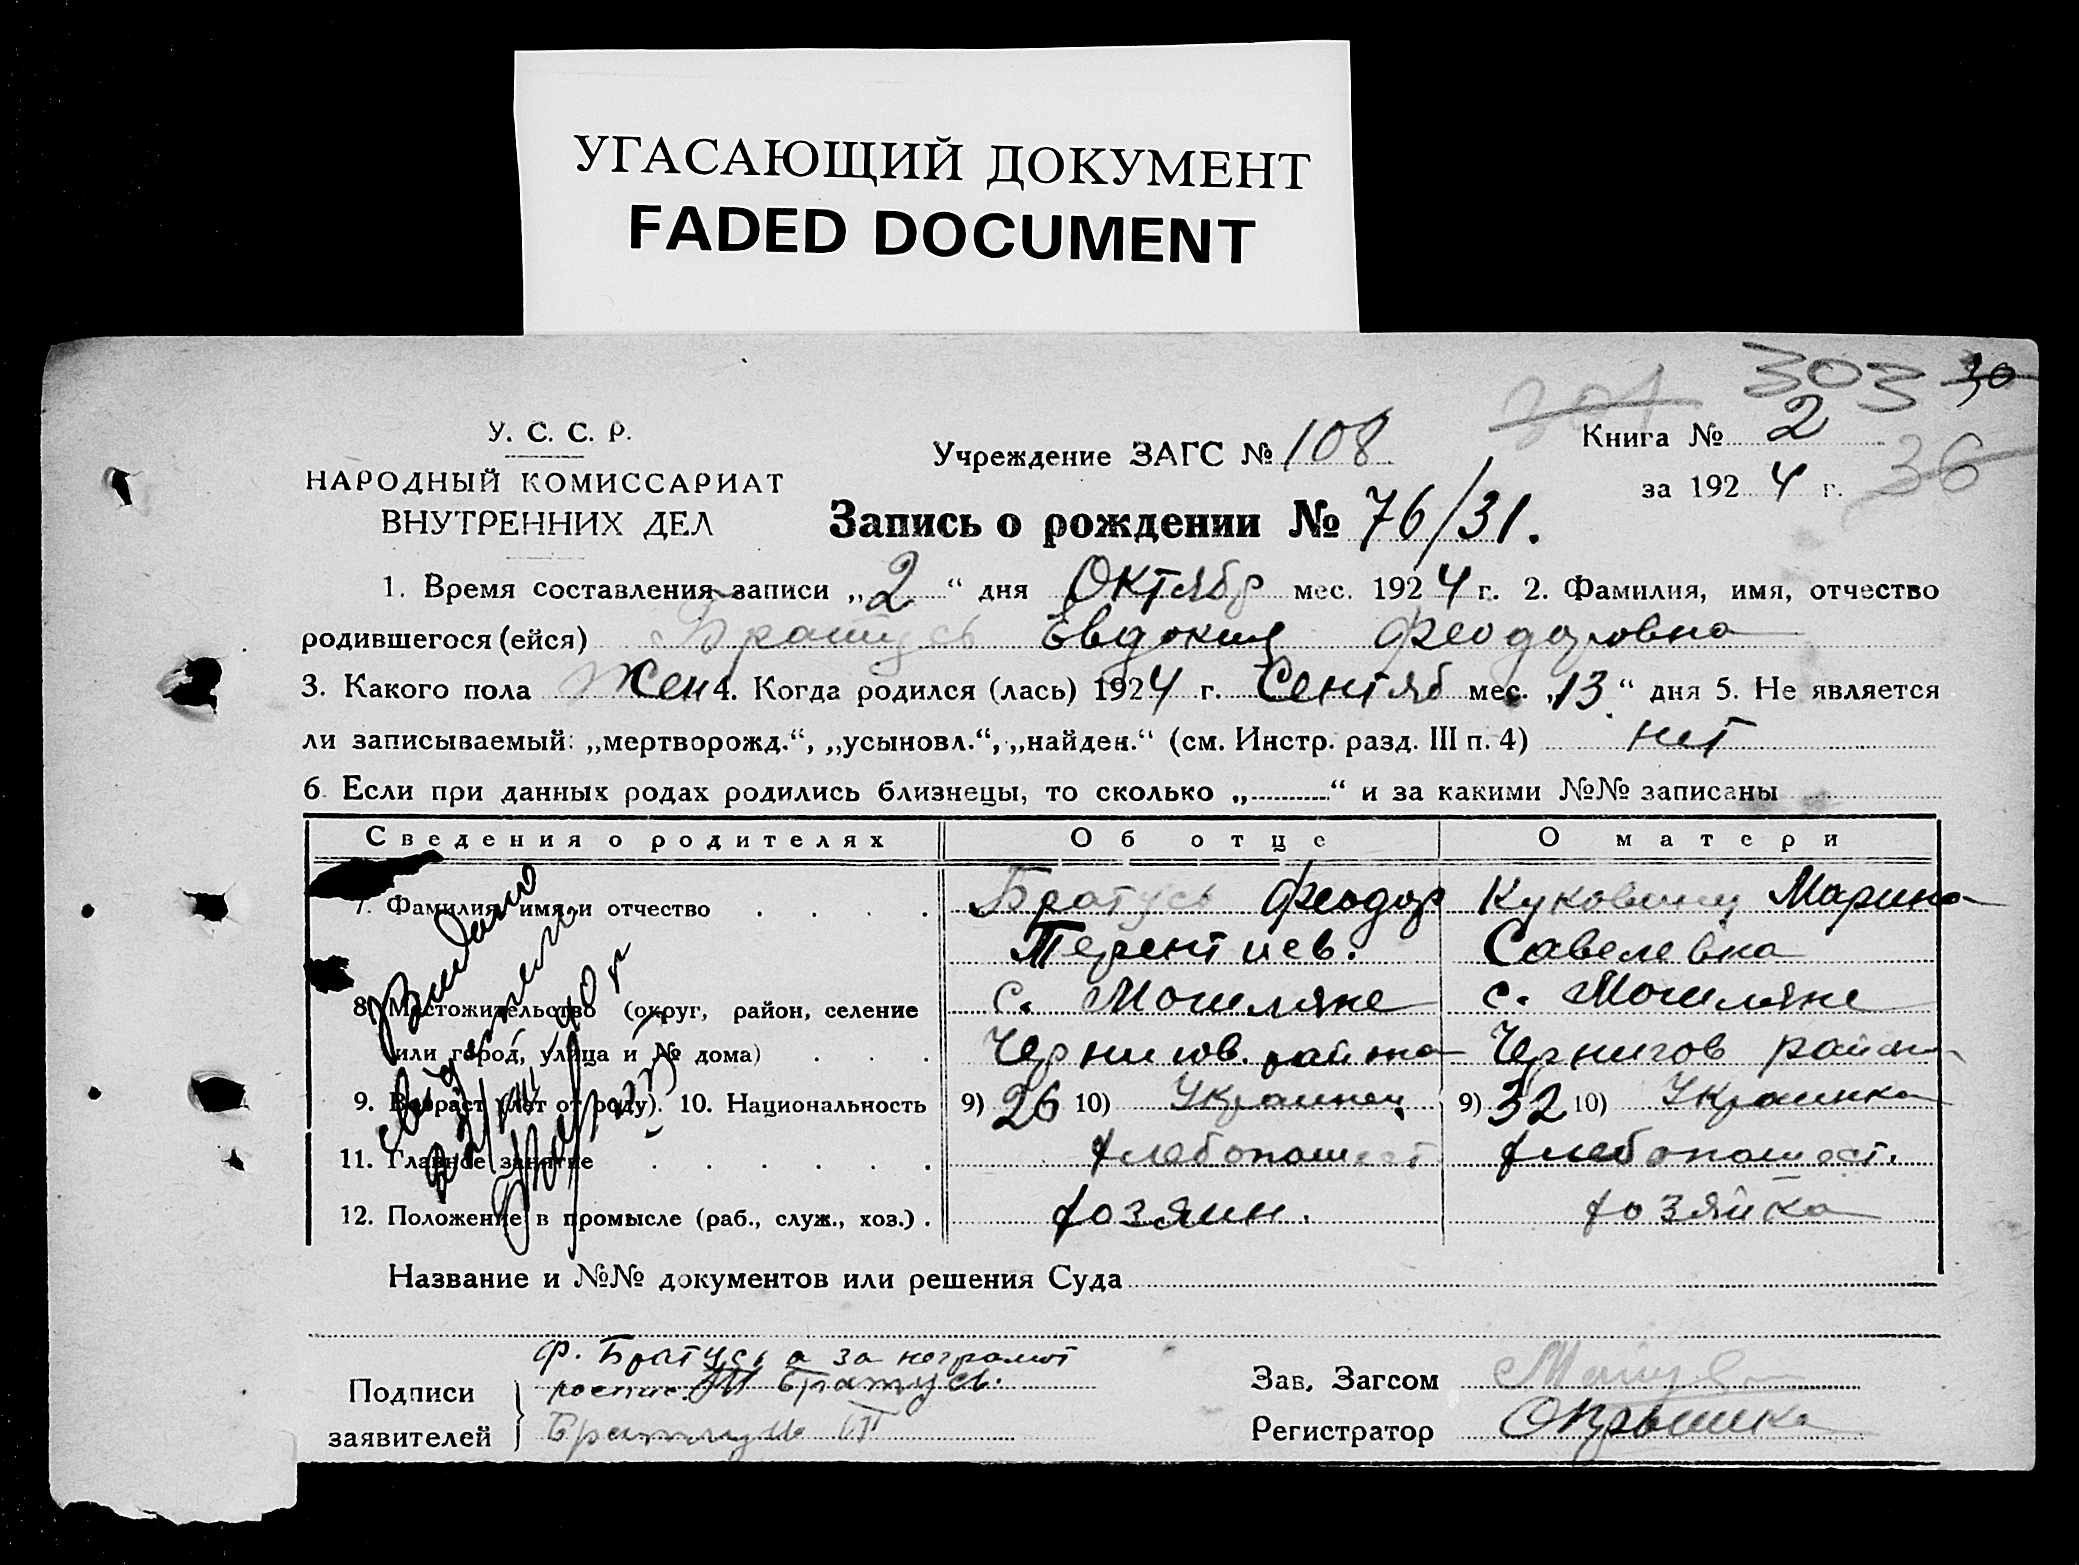 УГАСАЮЩИЙ ДОКУМЕНТ
FADED DOCUMENT
303 30
У. С. С. Р.
НАРОДНЫЙ КОМИССАРИАТ
ВНУТРЕННИХ ДЕЛ
Учреждение ЗАГС № 108
Книга № 2
за 1924 г. 36
Запись о рождении № 76/31.
1. Время составления записи „2“ дня Октябр мес. 1924 г. 2. Фамилия, имя, отчество
родившегося (ейся) Братусь Евдокия Феодоровна
3. Какого пола Жен 4. Когда родился (лась) 1924 г. Сентяб мес. „13“ дня 5. Не является
ли записываемый: „мертворожд.“, „усыновл.“, „найден.“ (см. Инстр. разд. III п. 4) нет
6. Если при данных родах родились близнецы, то сколько „..........“ и за какими №№ записаны
Сведения о родителях Об отце О матери
7. Фамилия, имя, и отчество Братусь Феодор Марина
Терентиев. Савелевна
8. Местожительство (округ, район, селение с. Могиляне с. Могиляне
или город, улица и № дома) Чернигов. района Чернигов район
9. Возраст (лет от роду). 10. Национальность 9) 26 10) Украинец 9) 32 10) Украинка
11. Главное занятие хлебопашест хлебопашест.
12. Положение в промысле (раб., служ., хоз.) хозяин. хозяйка
Название и №№ документов или решения Суда
Ф. Братусь а за неграмот
Подписи роспис. Братусь.
заявителей Братусь П
Зав. Загсом
Регистратор